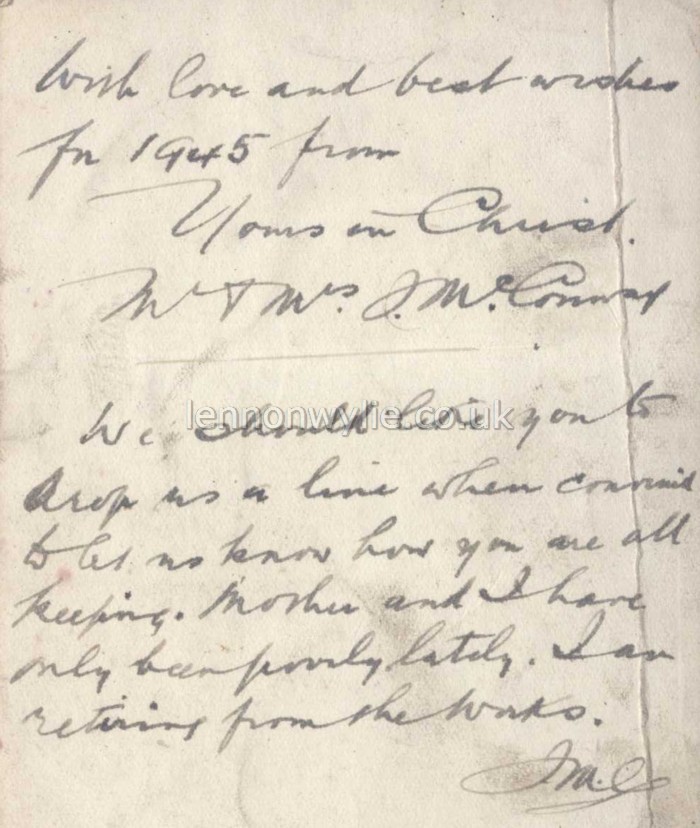 With love and best wishes
for 1945 from
Yours in Christ.
Mr & Mrs. J. Mc.
We should like you to
drop us a line when convenient
to let us know how you are all
keeping. Mother and I have
only been poorly lately. I am
retiring from the Works.
J. Mc.C
lennonwylie.co.uk